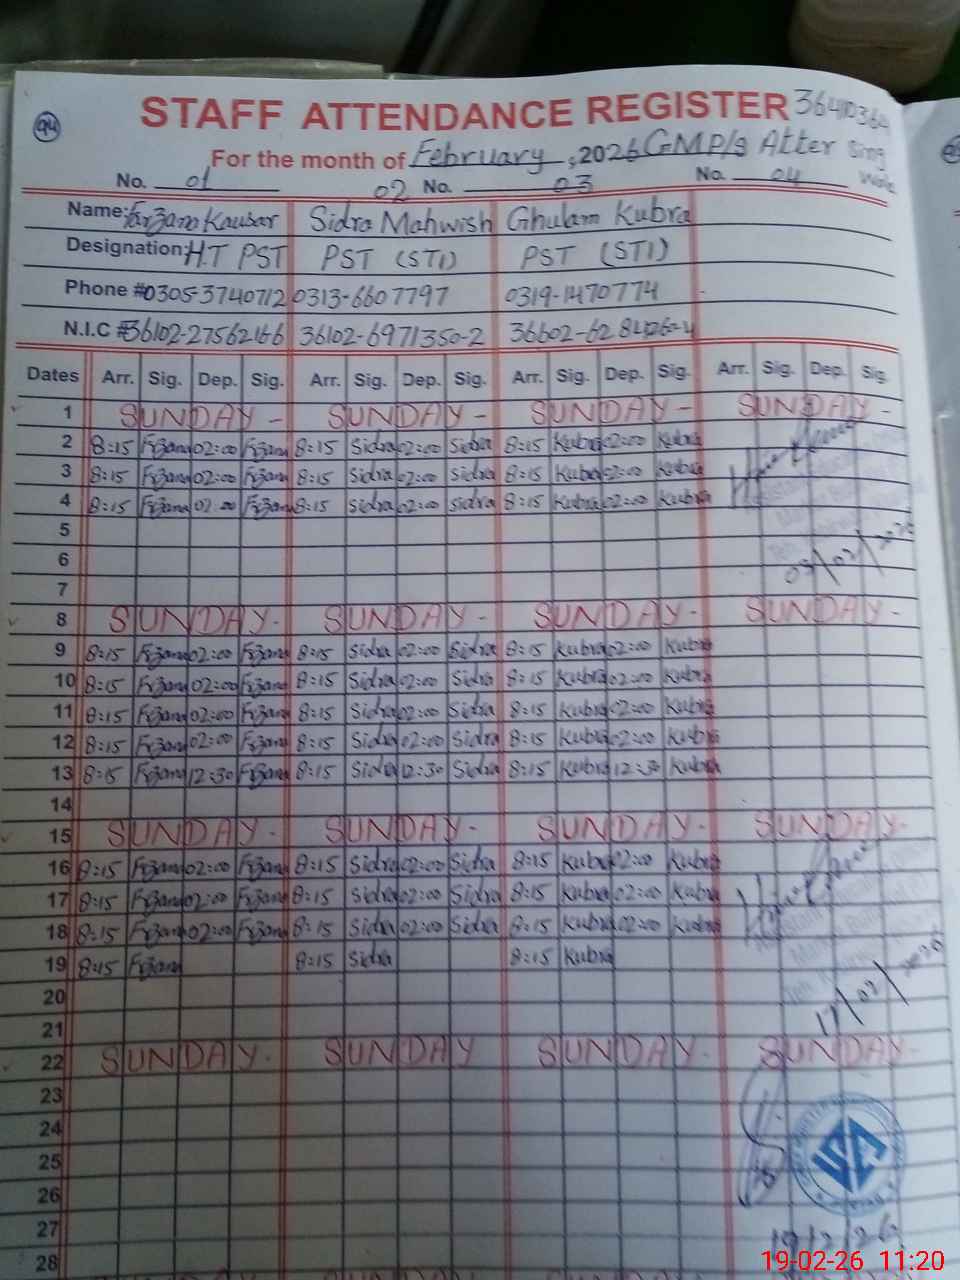 94
STAFF ATTENDANCE REGISTER 36410364
For the month of February, 2026 GMP/S Atter Sing Wala
No. 01 02 No. 03 No. 04
Name: Farzana Kausar Sidra Mahwish Ghulam Kubra
Designation: H.T PST PST (STI) PST (STI)
Phone # 0305-3740712 0313-6607797 0319-1470774
N.I.C # 36102-27562166 36102-6971350-2
Dates Arr. Sig. Dep. Sig. Arr. Sig. Dep. Sig. Arr. Sig. Dep. Sig. Arr. Sig. Dep. Sig.
1 SUNDAY - SUNDAY - SUNDAY - SUNDAY -
2 8:15 Frzana 02:00 Frzana 8:15 Sidra 02:00 Sidra 8:15 Kubra 02:00 Kubra
3 8:15 Frzana 02:00 Frzana 8:15 Sidra 02:00 Sidra 8:15 Kubra 02:00 Kubra
4 8:15 Frzana 02:00 Frzana 8:15 Sidra 02:00 Sidra 8:15 Kubra 02:00 Kubra
5
6
7
03/02/2026
8 SUNDAY - SUNDAY - SUNDAY - SUNDAY -
9 8:15 Frzana 02:00 Frzana 8:15 Sidra 02:00 Sidra 8:15 Kubra 02:00 Kubra
10 8:15 Frzana 02:00 Frzana 8:15 Sidra 02:00 Sidra 8:15 Kubra 02:00 Kubra
11 8:15 Frzana 02:00 Frzana 8:15 Sidra 02:00 Sidra 8:15 Kubra 02:00 Kubra
12 8:15 Frzana 02:00 Frzana 8:15 Sidra 02:00 Sidra 8:15 Kubra 02:00 Kubra
13 8:15 Frzana 12:30 Frzana 8:15 Sidra 12:30 Sidra 8:15 Kubra 12:30 Kubra
14
15 SUNDAY - SUNDAY - SUNDAY - SUNDAY -
16 8:15 Frzana 02:00 Frzana 8:15 Sidra 02:00 Sidra 8:15 Kubra 02:00 Kubra
17 8:15 Frzana 02:00 Frzana 8:15 Sidra 02:00 Sidra 8:15 Kubra 02:00 Kubra
18 8:15 Frzana 02:00 Frzana 8:15 Sidra 02:00 Sidra 8:15 Kubra 02:00 Kubra
19 8:15 Frzana 8:15 Sidra 8:15 Kubra
20
21
17/02/2026
22 SUNDAY - SUNDAY SUNDAY - SUNDAY -
23
24
25
26
27
19/2/26
28
19-02-26 11:20